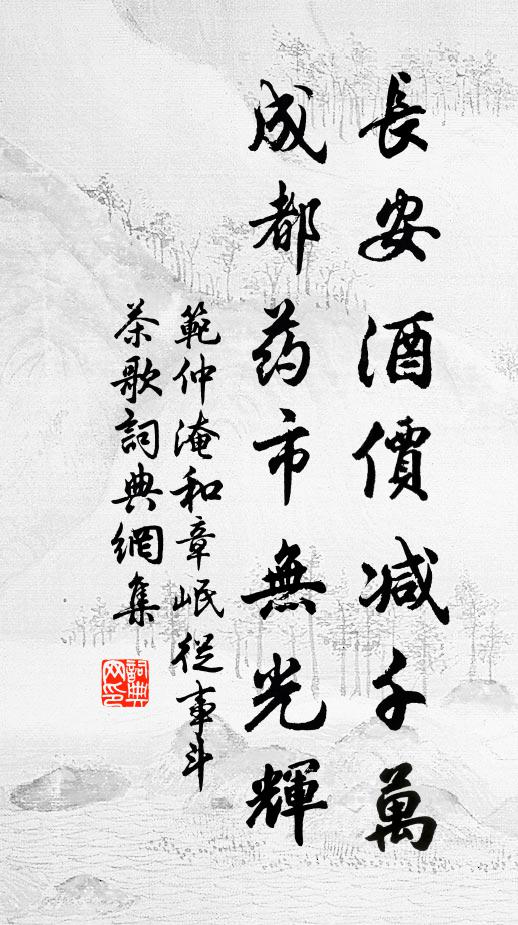 長安酒價減千萬
成都药市無光輝
範仲淹和章岷從事斗
茶歌詞典網集
詞典网印